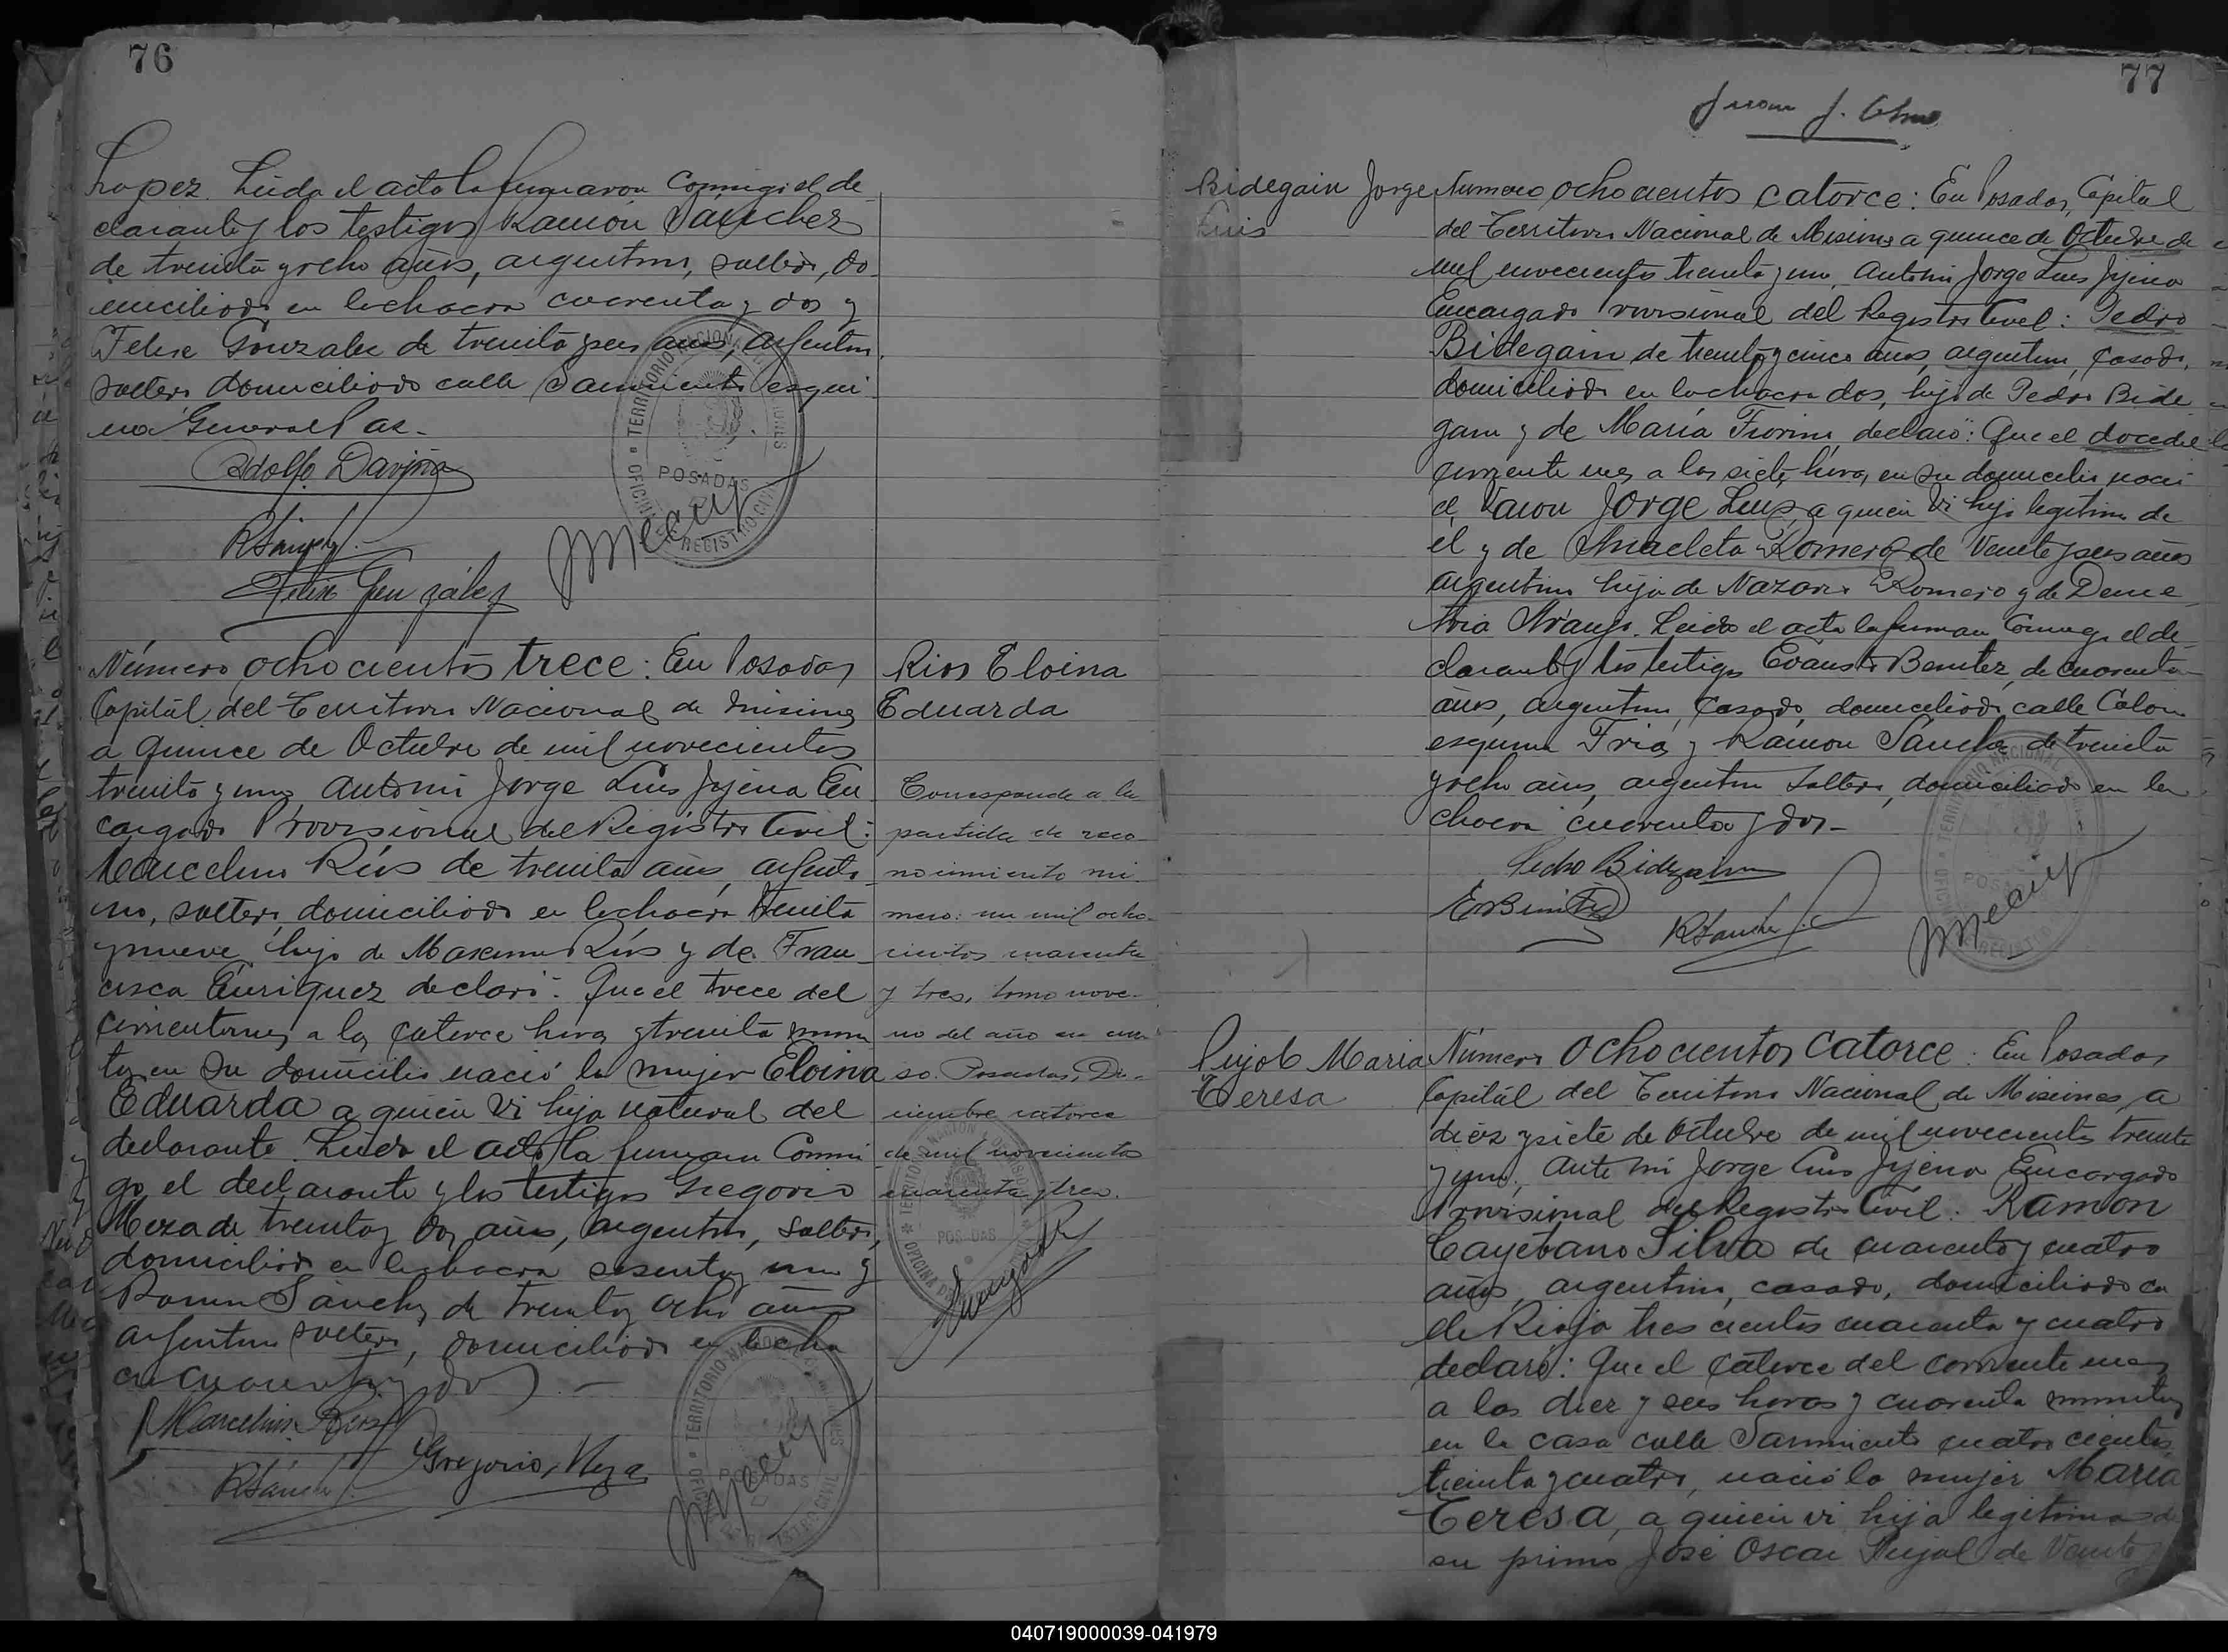 76
Lopez. Leida el acta la firmaron conmigo el de
clarante y los testigos Ramón Sánchez
de treinta y ocho años, argentino, soltero, do
miciliado en la chacra cuarenta y dos y
Felise Gonzalez de treinta y seis años, argentino,
soltero domiciliado calle Sarmiento esqui
na General Paz.
Adolfo Daviña
RSánchez
Felix González
TERRITORIO NACIONAL
POSADAS
OFICINA REGISTRO CIVIL
Número ochocientos trece: En Posadas
Capital del Territorio Nacional de Misiones
a quince de Octubre de mil novecientos
treinta y uno, Ante mi Jorge Luis Jyena En
cargado Provisional del Registro Civil:
Marcelino Ríos de treinta años, argenti
no, soltero, domiciliado en la chacra treinta
y nueve, hijo de Maximo Ríos y de Fran
cisca Enriquez declaró: Que el trece del
corriente mes a las catorce horas y treinta minu
tos en su domicilio nació la mujer Eloina
Eduarda a quien vi hija natural del
declarante. Leida el acta la firman conmi
go el declarante y los testigos Gregorio
Meza de treinta y dos años, argentino, soltero,
domiciliado en la chacra sesenta y uno y
Ramon Sánchez de treinta y ocho años
argentino soltero, domiciliado en la cha
cra cuarenta y dos.
Marcelino Rios
Gregorio Meza
RSánchez
Rios Eloina
Eduarda
Corresponde a la
partida de reco
nocimiento nú
mero: un mil ocho
cientos cuarenta
y tres, tomo nove
no del año en cur
so. Posadas, Di
ciembre catorce
de mil novecientos
cuarenta y tres.
POSADAS
77
Juan J.
Bidegain Jorge
Luis
Numero ochocientos catorce: En Posadas, Capital
del Territorio Nacional de Misiones a quince de Octubre de
mil novecientos treinta y uno, Ante mi Jorge Luis Jyena
Encargado Provisional del Registro Civil: Pedro
Bidegain de treinta y cinco años, argentino, casado,
domiciliado en la chacra dos, hijo de Pedro Bide
gain y de María Fiorini declaró: Que el doce del
corriente mes a las siete horas, en su domicilio nació
el varon Jorge Luis a quien vi hijo legitimo de
el y de Anacleta Romero de veinte y seis años
argentina hija de Nazario Romero y de Deme
tria Araujo. Leida el acta la firman conmigo el de
clarante y los testigos Evaristo Benitez, de cuarenta
años, argentino, casado, domiciliado calle Colon
esquina Frias y Ramon Sanchez de treinta
y ocho años, argentino soltero, domiciliado en la
chacra cuarenta y dos.
Pedro Bidegain
EvBenitez
RSanchez
TERRITORIO NACIONAL
POSADAS
Pujol Maria
Teresa
Número Ochocientos catorce: En Posadas
Capital del Territorio Nacional de Misiones, a
diez y siete de Octubre de mil novecientos treinta
y uno, Ante mi Jorge Luis Jyena Encargado
Provisional del Registro Civil: Ramon
Cayetano Silva de cuarenta y cuatro
años, argentino, casado, domiciliado ca
lle Rioja trescientos cuarenta y cuatro
declaró: Que el catorce del corriente mes
a las diez y seis horas y cuarenta minutos
en la casa calle Sarmiento cuatrocientos
treinta y cuatro, nació la mujer Maria
Teresa, a quien vi hija legitima de
su primo José Oscar Pujol de veinte y
040719000039-041979